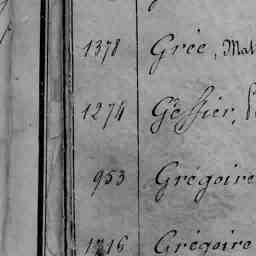 1378 Grée, Mat
1274 Gessier,
953 Grégoire
1216 Grégoire